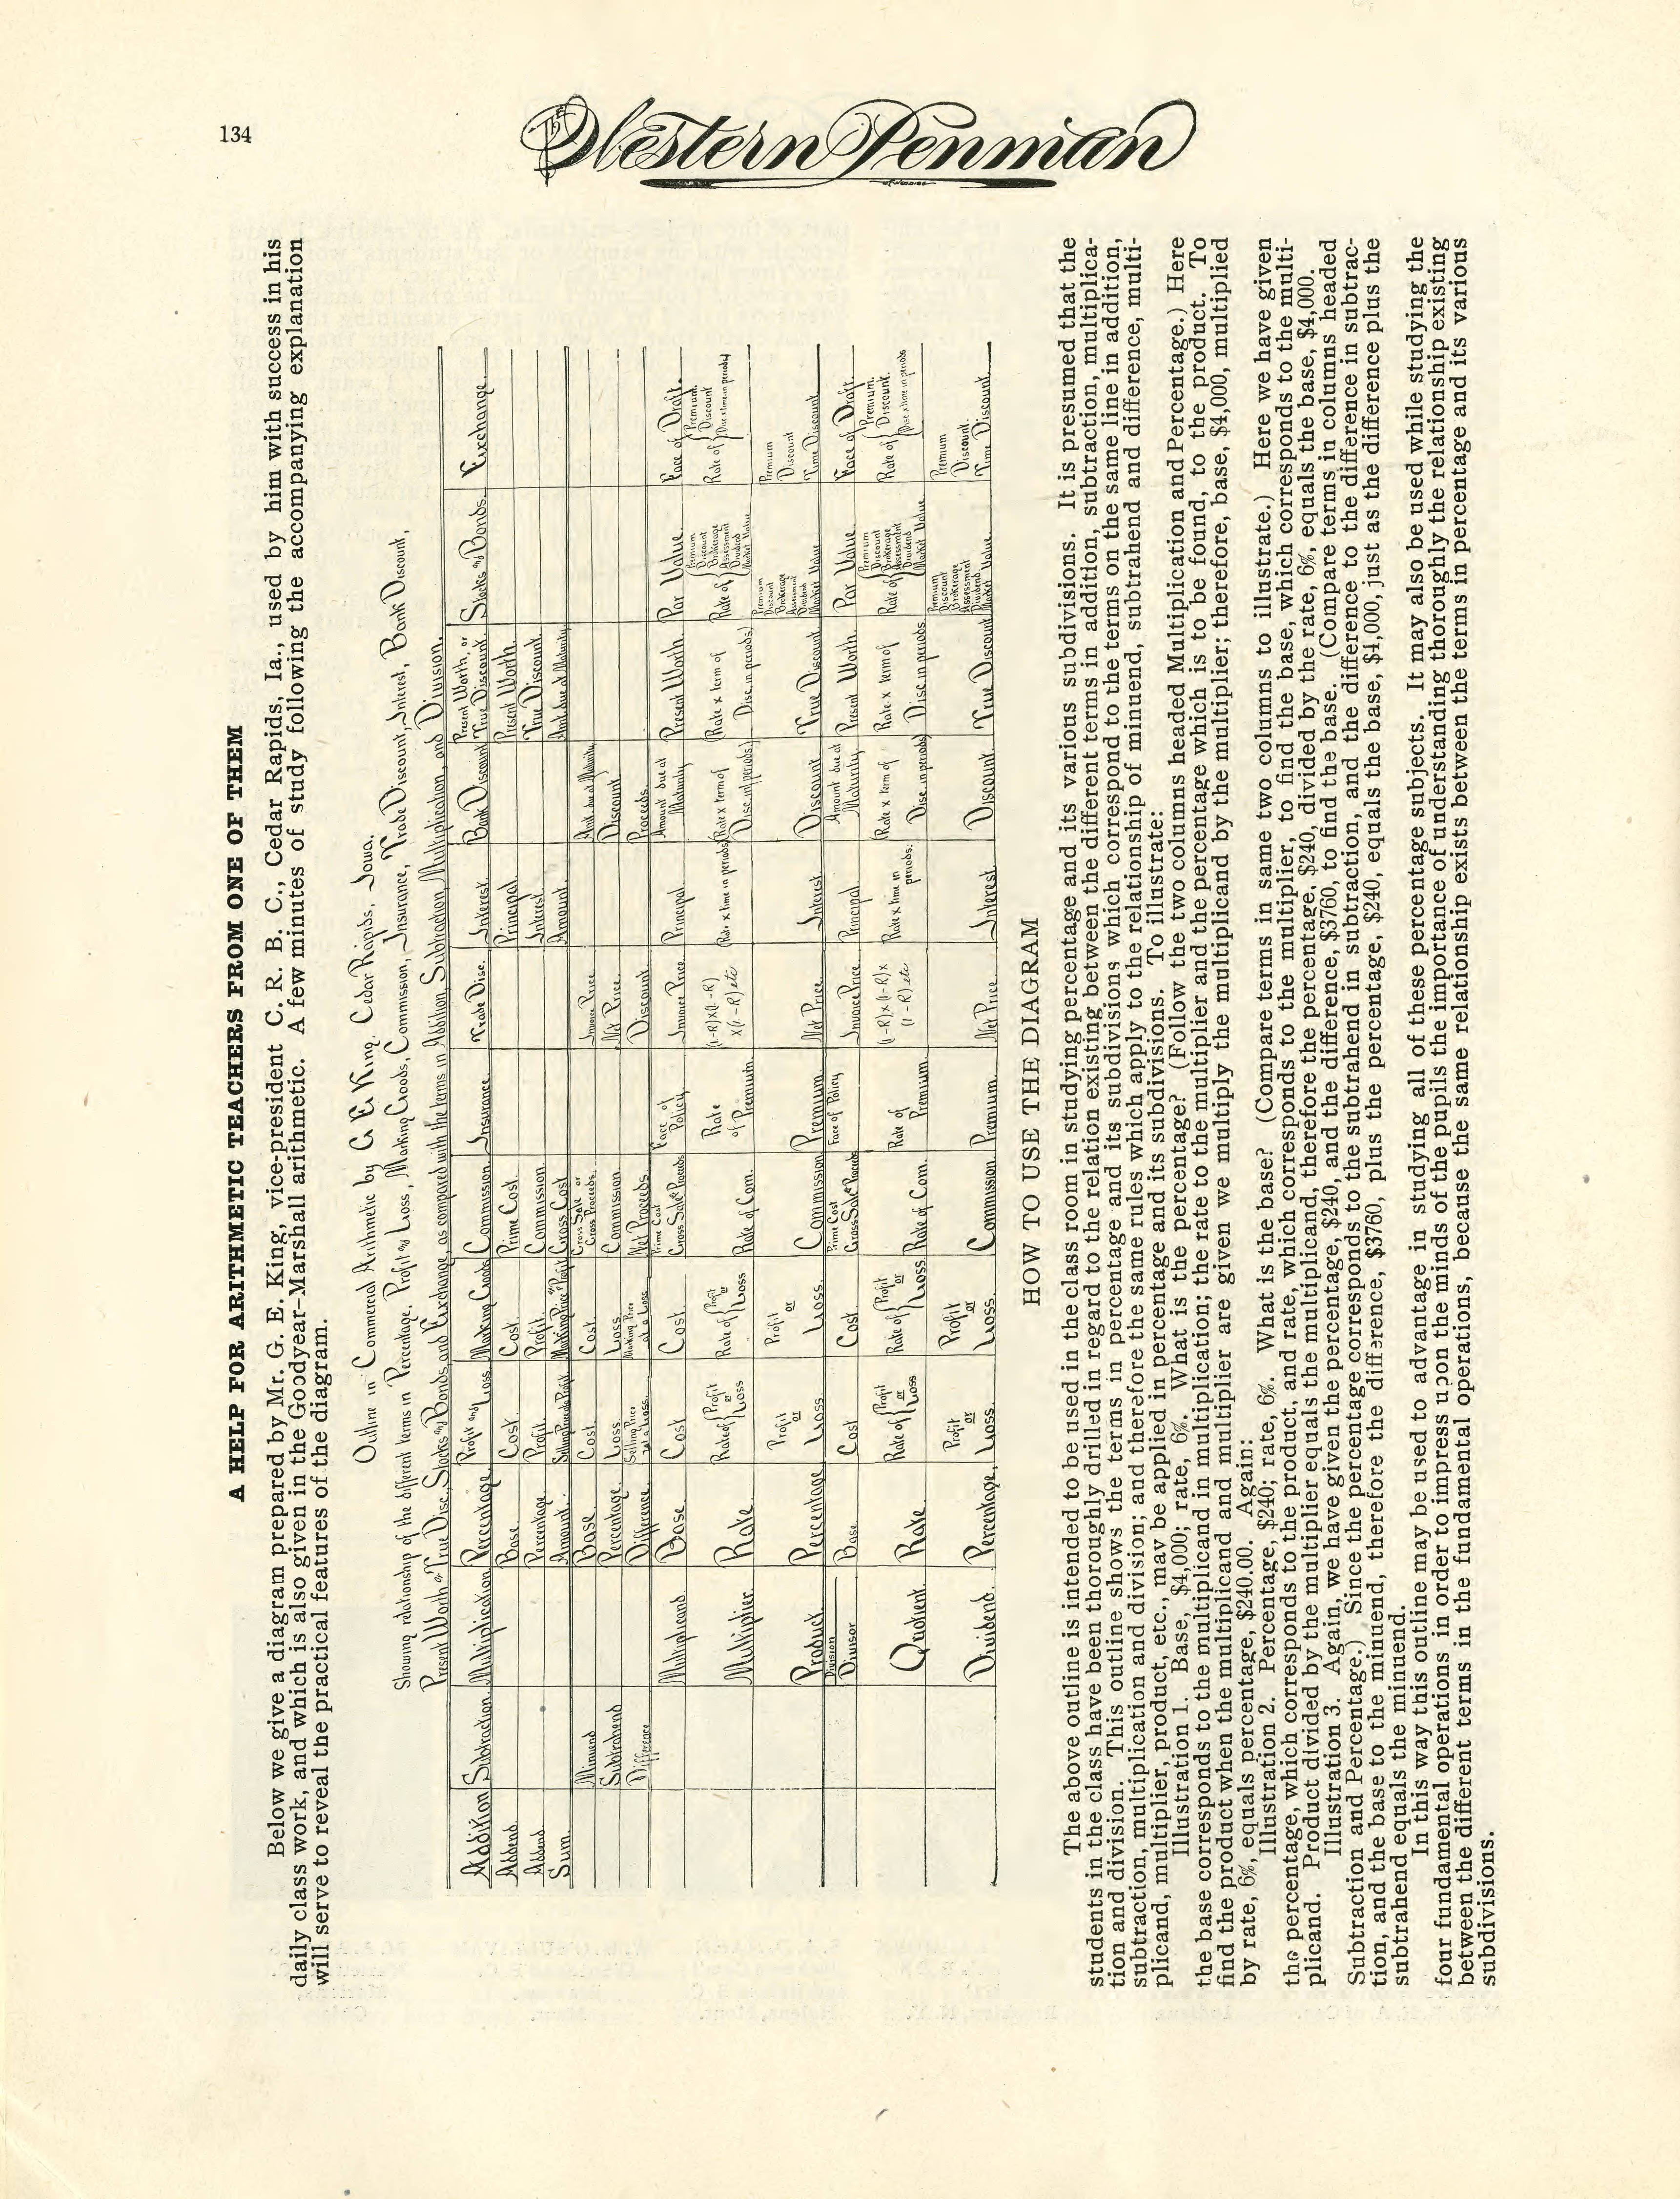 134
The Western Penman
A HELP FOR ARITHMETIC TEACHERS FROM ONE OF THEM
Below we give a diagram prepared by Mr. G. E. King, vice-president C. R. B. C., Cedar Rapids, Ia., used by him with success in his
daily class work, and which is also given in the Goodyear-Marshall arithmetic. A few minutes of study following the accompanying explanation
will serve to reveal the practical features of the diagram.
Outline in Commercial Arithmetic by G. E. King. Cedar Rapids, Iowa.
Showing relationship of the different terms in Percentage, Profit and Loss, Marking Goods, Commission, Insurance, Trade Discount, Interest, Bank Discount,
Present Worth or True Disc, Stocks and Bonds and Exchange, as compared with the terms in Addition, Subtraction, Multiplication, and Division.
Addition Subtraction Multiplication Percentage Profit and Loss Marking Goods Commission Insurance Trade Disc. Interest Bank Discount Present Worth, or True Discount Stocks and Bonds Exchange
Addend Base Cost Cost Prime Cost Principal Present Worth
Addend Percentage Profit Profit Commission Interest True Discount
Sum Amount Selling Price at Profit Marking Price at Profit Gross Cost Amount Amt due at Maturity
Minuend Base Cost Cost Gross Sale or Gross Proceeds Invoice Price Amt. due at Maturity
Subtrahend Percentage Loss Loss Commission Net Price Discount
Difference Difference Selling Price at a Loss Marking Price at a Loss Net Proceeds Discount Proceeds
Multiplicand Base Cost Cost Prime Cost Gross Sale or Proceeds Face of Policy Invoice Price Principal Amount due at Maturity Present Worth Par Value Face of Draft
Multiplier Rate Rate of { Profit or Loss Rate of { Profit or Loss Rate of Com. Rate of Premium (1-R)x(1-R) x(1-R) etc (Rate x time in periods) (Rate x term of Disc. in periods) (Rate x term of Disc. in periods) Rate of { Premium Discount Brokerage Assessment Dividend Market Value Rate of { Premium Discount Disc x time in periods
Product Percentage Profit or Loss Profit or Loss Commission Premium Net Price Interest Discount True Discount Premium Discount Brokerage Assessment Dividend Market Value Premium Discount Time Discount
Division
Divisor Base Cost Cost Prime Cost Gross Sale or Proceeds Face of Policy Invoice Price Principal Amount due at Maturity Present Worth Par Value Face of Draft
Quotient Rate Rate of { Profit or Loss Rate of { Profit or Loss Rate of Com. Rate of Premium (1-R)x(1-R)x (1-R) etc Rate x time in periods. (Rate x term of Disc. in periods) Rate x term of Disc. in periods Rate of { Premium Discount Brokerage Assessment Dividend Market Value Rate of { Premium. Discount. Disc x time in periods
Dividend Percentage Profit or Loss Profit or Loss Commission Premium Net Price Interest Discount True Discount Premium Discount Brokerage Assessment Dividend Market Value Premium Discount. Time Discount
HOW TO USE THE DIAGRAM
The above outline is intended to be used in the class room in studying percentage and its various subdivisions. It is presumed that the
students in the class have been thoroughly drilled in regard to the relation existing between the different terms in addition, subtraction, multiplica-
tion and division. This outline shows the terms in percentage and its subdivisions which correspond to the terms on the same line in addition,
subtraction, multiplication and division; and therefore the same rules which apply to the relationship of minuend, subtrahend and difference, multi-
plicand, multiplier, product, etc., may be applied in percentage and its subdivisions. To illustrate:
Illustration 1. Base, $4,000; rate, 6%. What is the percentage? (Follow the two columns headed Multiplication and Percentage.) Here
the base corresponds to the multiplicand in multiplication; the rate to the multiplier and the percentage which is to be found, to the product. To
find the product when the multiplicand and multiplier are given we multiply the multiplicand by the multiplier; therefore, base, $4,000, multiplied
by rate, 6%, equals percentage, $240.00. Again:
Illustration 2. Percentage, $240; rate, 6%. What is the base? (Compare terms in same two columns to illustrate.) Here we have given
the percentage, which corresponds to the product, and rate, which corresponds to the multiplier, to find the base, which corresponds to the multi-
plicand. Product divided by the multiplier equals the multiplicand, therefore the percentage, $240, divided by the rate, 6%, equals the base, $4,000.
Illustration 3. Again, we have given the percentage, $240, and the difference, $3760, to find the base. (Compare terms in columns headed
Subtraction and Percentage.) Since the percentage corresponds to the subtrahend in subtraction, and the difference to the difference in subtrac-
tion, and the base to the minuend, therefore the difference, $3760, plus the percentage, $240, equals the base, $4,000, just as the difference plus the
subtrahend equals the minuend.
In this way this outline may be used to advantage in studying all of these percentage subjects. It may also be used while studying the
four fundamental operations in order to impress upon the minds of the pupils the importance of understanding thoroughly the relationship existing
between the different terms in the fundamental operations, because the same relationship exists between the terms in percentage and its various
subdivisions.